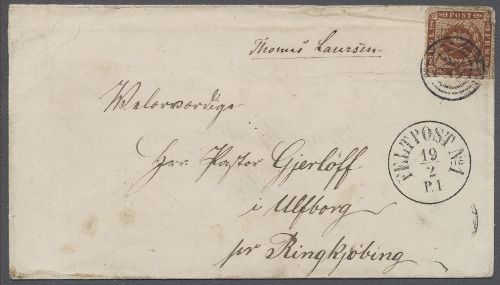 POST
Thomas Laursen.
Welærværdige
Hrr. Pastor Gjerløff
i Ulfborg
pr Ringkjøbing
FELTPOST No 1
19
2
P.1